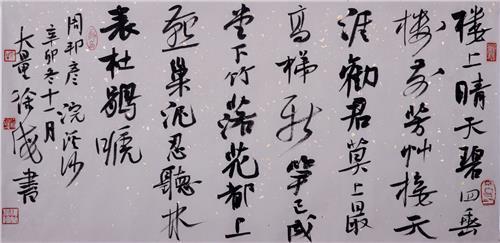 楼上晴天碧四垂
楼前芳艸接天
涯勸君莫上最
高梯新笋已成
堂下竹落花都上
燕巢泥忍聽林
表杜鵑啼
周邦彦浣溪沙
辛卯冬十一月
徐書